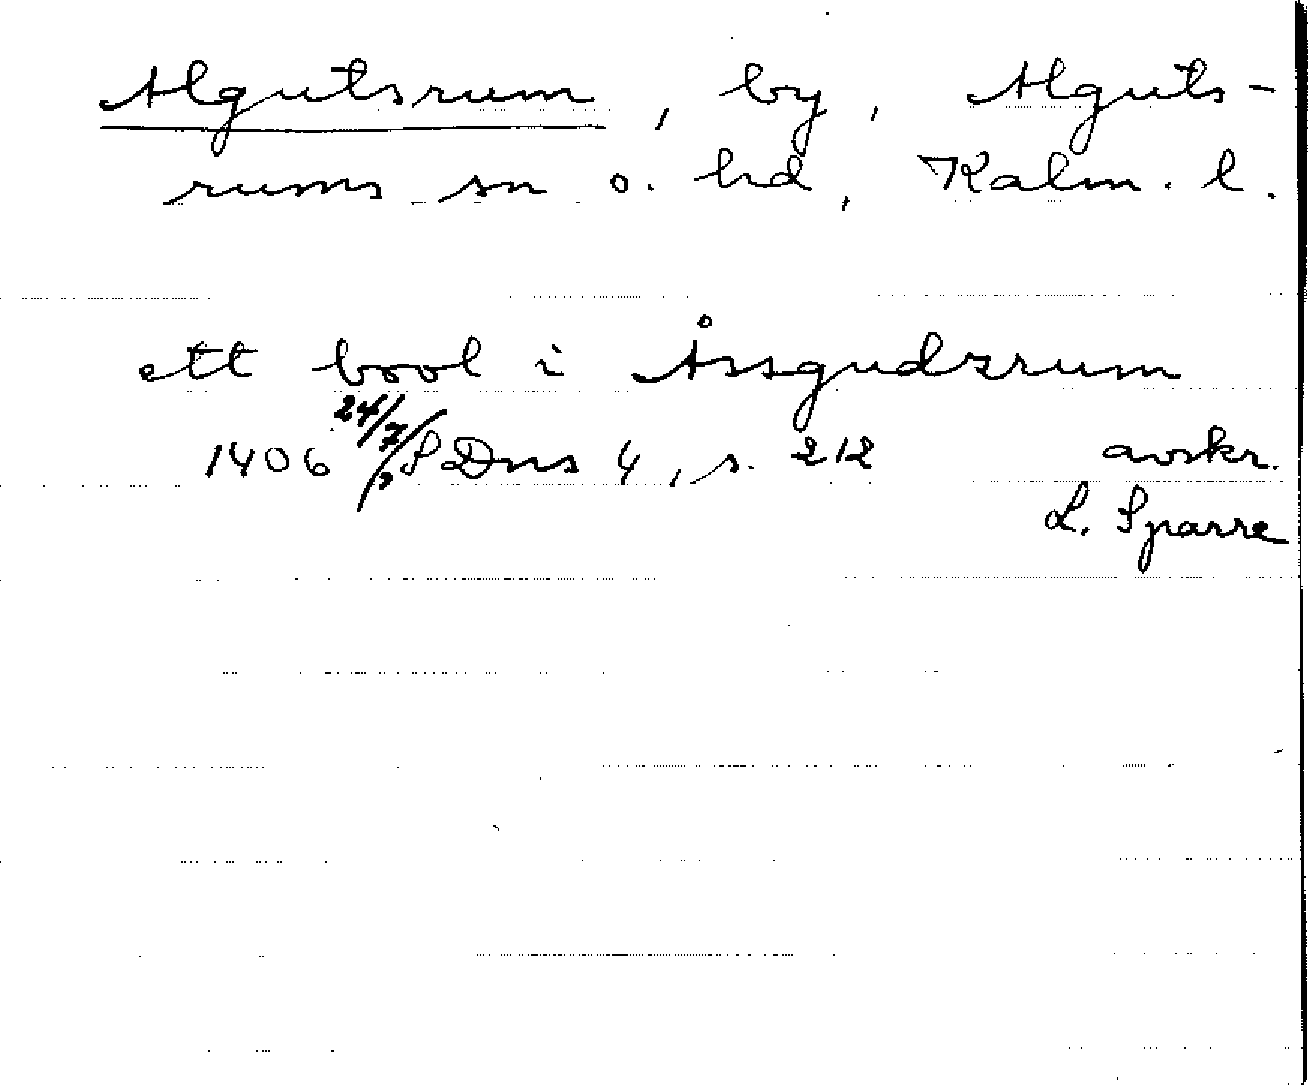 Algutsrum, by, Alguts-
rums sn o. hd, Kalm. l.
ett bool i Åssgudzrum
1406 24/7 SDns 4, s. 212 avskr.
L. Sparre